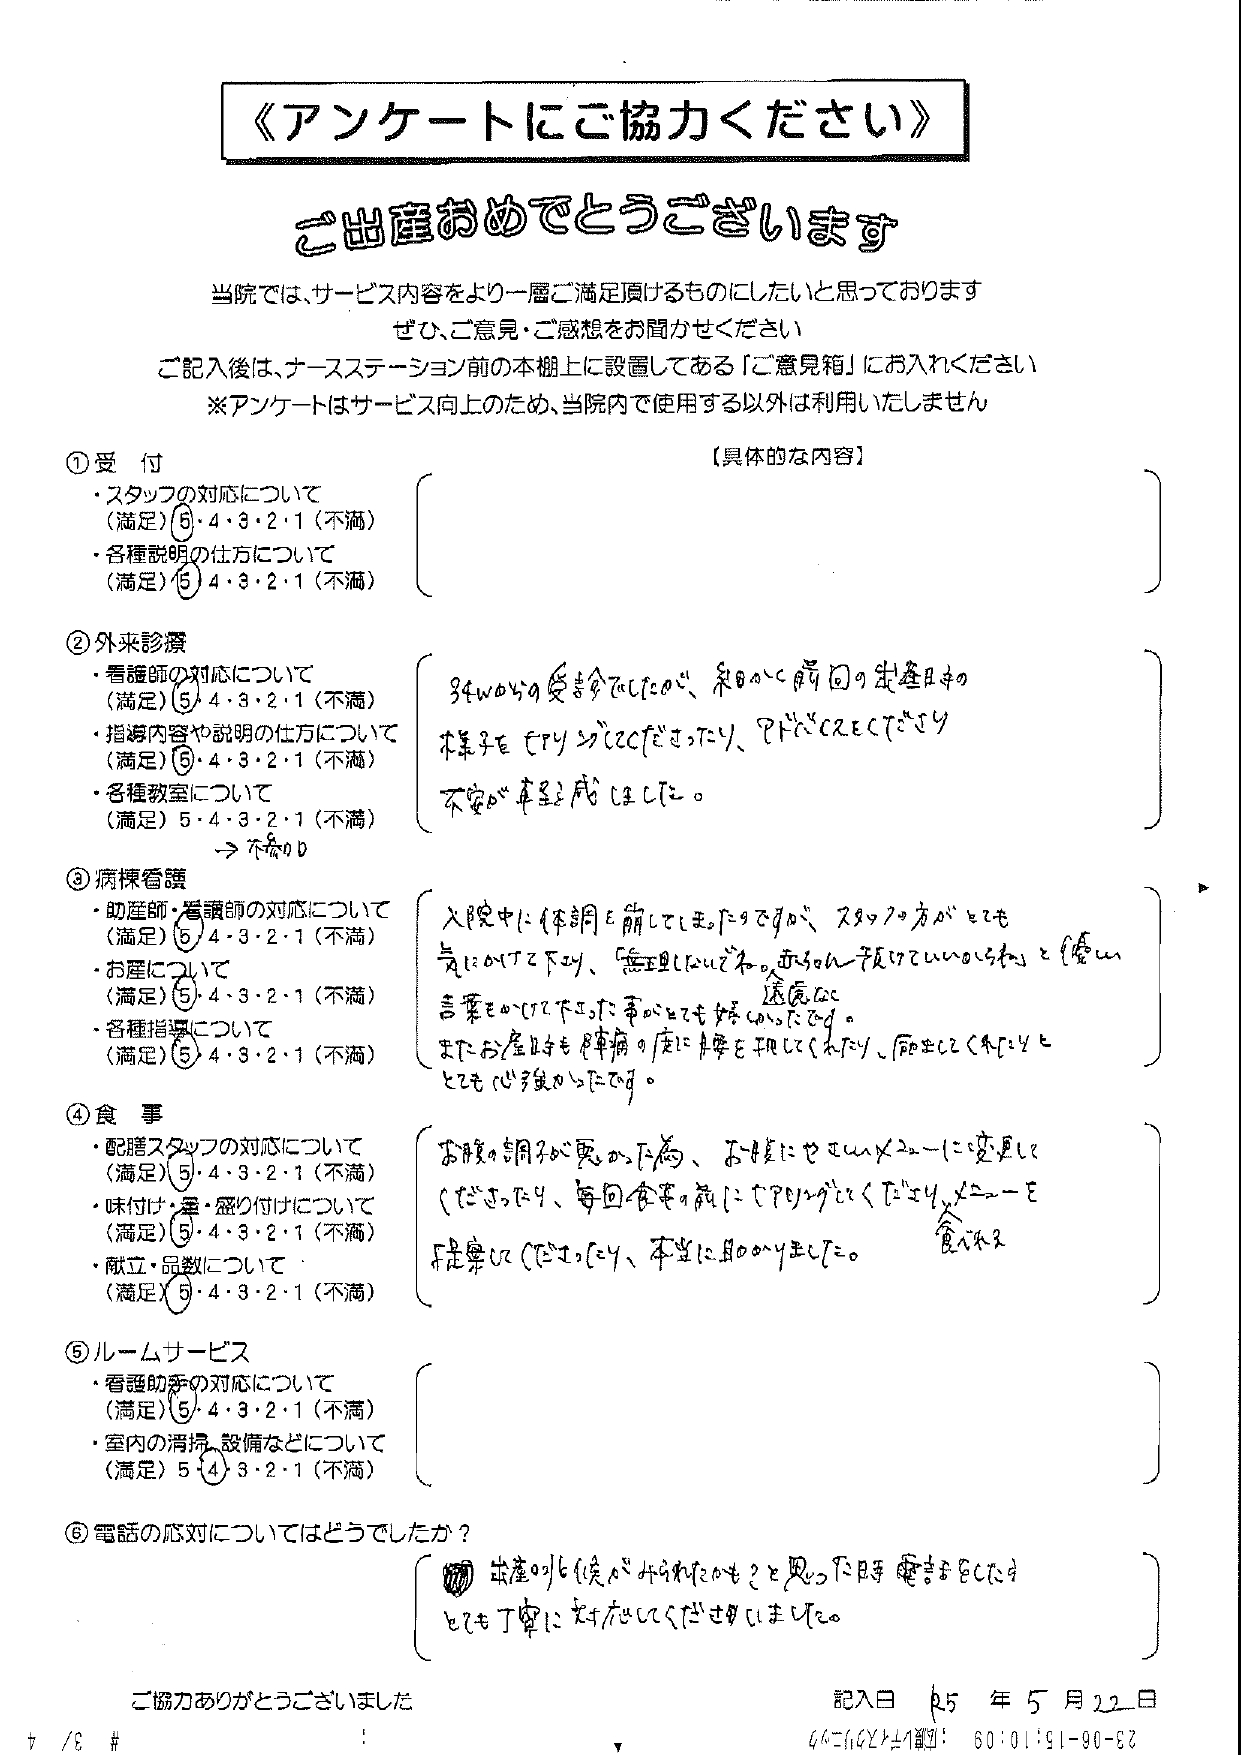 《アンケートにご協力ください》
ご出産おめでとうございます
当院では、サービス内容をより一層ご満足頂けるものにしたいと思っております
ぜひ、ご意見・ご感想をお聞かせください
ご記入後は、ナースステーション前の本棚上に設置してある「ご意見箱」にお入れください
※アンケートはサービス向上のため、当院内で使用する以外は利用いたしません
【具体的な内容】
①受　付
・スタッフの対応について
（満足）5・4・3・2・1（不満）
・各種説明の仕方について
（満足）5・4・3・2・1（不満）
②外来診療
・看護師の対応について
（満足）5・4・3・2・1（不満）
・指導内容や説明の仕方について
（満足）5・4・3・2・1（不満）
・各種教室について
（満足）5・4・3・2・1（不満）
→ 不参加
34wからの受診でしたが、細かく前回の出産時の
様子をヒアリングしてくださったり、アドバイスをくださり
不安が軽減しました。
③病棟看護
・助産師・看護師の対応について
（満足）5・4・3・2・1（不満）
・お産について
（満足）5・4・3・2・1（不満）
・各種指導について
（満足）5・4・3・2・1（不満）
入院中に体調を崩してしまったのですが、スタッフの方がとても
気にかけて下さり、「無理しないでね。赤ちゃん預けていいからね」と優しい
遠慮なく
言葉をかけて下さった事がとても嬉しかったです。
またお産時も陣痛の度に腰を押してくれたり、励ましてくれたりと
とても心強かったです。
④食　事
・配膳スタッフの対応について
（満足）5・4・3・2・1（不満）
・味付け・量・盛り付けについて
（満足）5・4・3・2・1（不満）
・献立・品数について
（満足）5・4・3・2・1（不満）
お腹の調子が悪かった為、お腹にやさしいメニューに変更して
くださったり、毎回食事の前にヒアリングしてくださり、メニューを
食べれる
提案してくださったり、本当に助かりました。
⑤ルームサービス
・看護助手の対応について
（満足）5・4・3・2・1（不満）
・室内の清掃、設備などについて
（満足）5・4・3・2・1（不満）
⑥電話の応対についてはどうでしたか？
出産の兆候がみられたかも？と思った時電話をしたす
とても丁寧に対応してくださいました。
ご協力ありがとうございました
記入日 R5 年 5 月 22 日
23-06-15;10:09
# 3/ 4